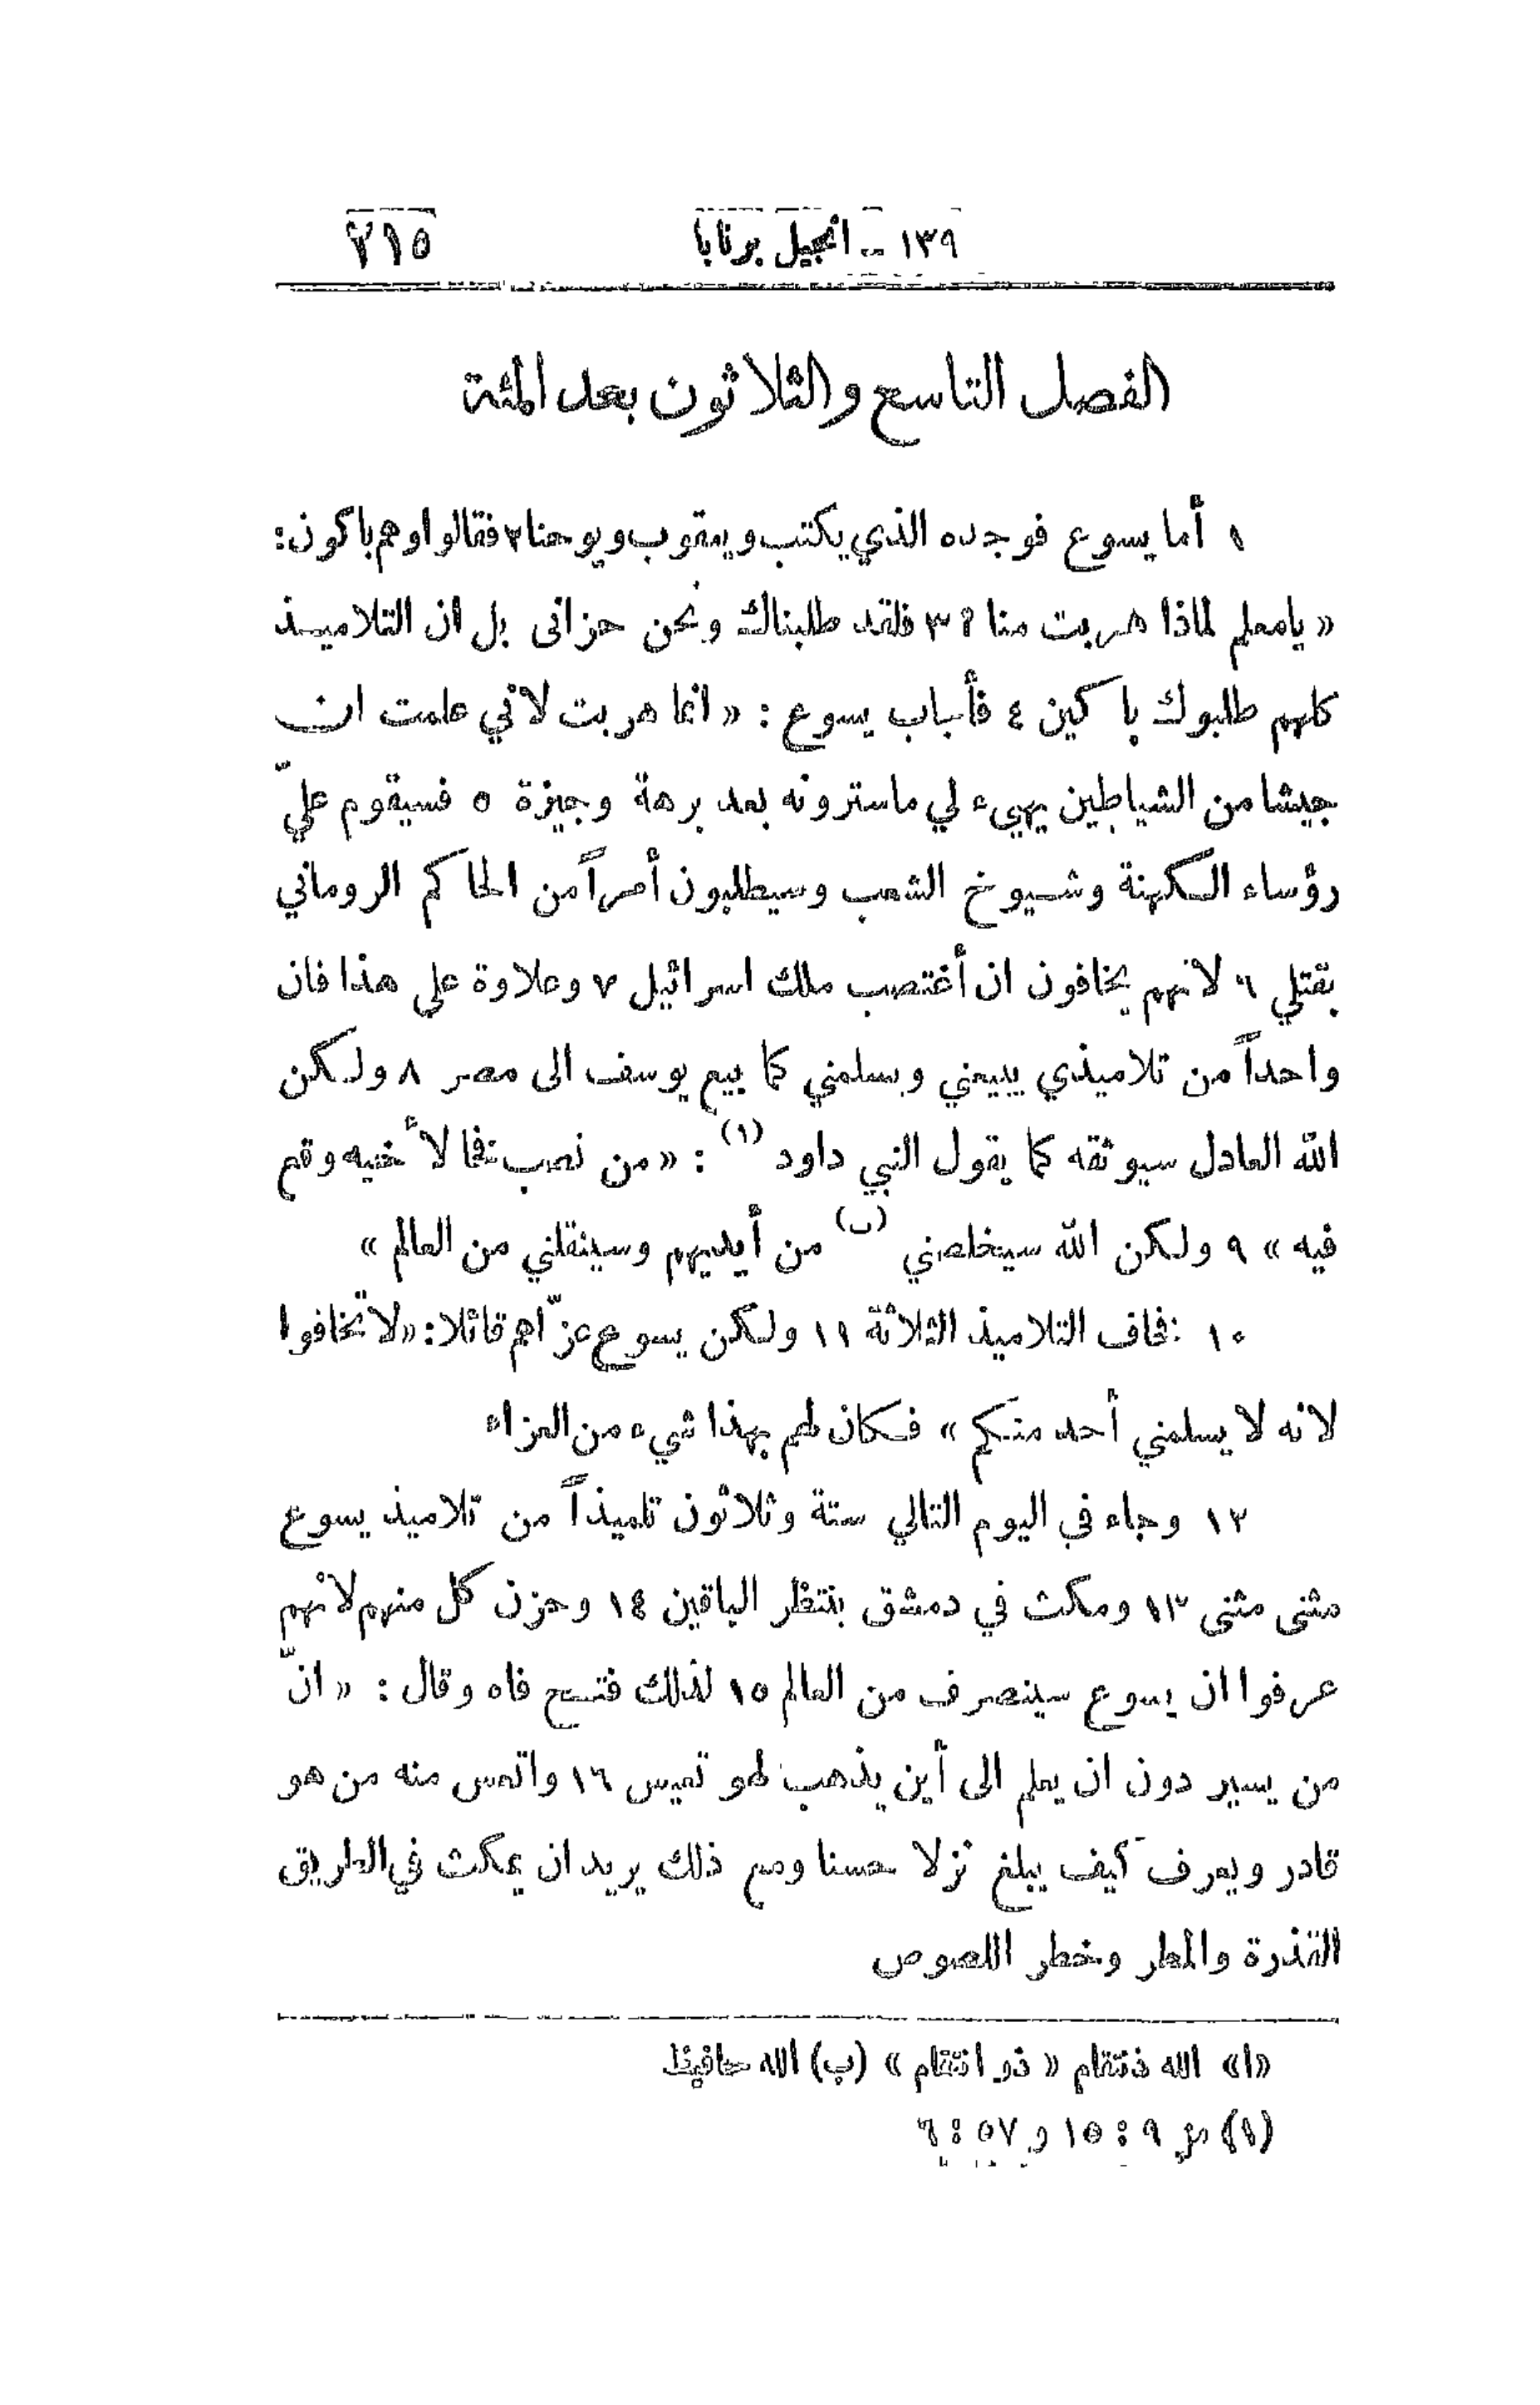 ١٣٩ -- انجيل برنابا ٢١٥
الفصل التاسع والثلاثون بعد المئة
١ أما يسوع فوجده الذي يكتب ويعقوب ويوحنا ٢ فقالوا وهم باكون:
« يامعلم لماذا هربت منا ؟ ٣ فلقد طلبناك ونحن حزانى بل ان التلاميذ
كلهم طلبوك باكين ٤ فأجاب يسوع : « انما هربت لاني علمت ان
جيشا من الشياطين يهيء لي ماسترونه بعد برهة وجيزة ٥ فسيقوم عليّ
رؤساء الكهنة وشيوخ الشعب وسيطلبون أمراً من الحاكم الروماني
بقتلي ٦ لانهم يخافون ان أغتصب ملك اسرائيل ٧ وعلاوة على هذا فان
واحداً من تلاميذي يبيعني ويسلمني كما بيع يوسف الى مصر ٨ ولكن
الله العادل سيوثقه كما يقول النبي داود (١) : « من نصب فخا لأخيه وقع
فيه » ٩ ولكن الله سيخلصني (ب) من أيديهم وسينقلني من العالم »
١٠ فخاف التلاميذ الثلاثة ١١ ولكن يسوع عزّاهم قائلا: « لا تخافوا
لانه لا يسلمني أحد منكم » فكان لهم بهذا شيء من العزاء
١٢ وجاء في اليوم التالي ستة وثلاثون تلميذاً من تلاميذ يسوع
مثنى مثنى ١٣ ومكث في دمشق ينتظر الباقين ١٤ وحزن كل منهم لانهم
عرفوا ان يسوع سينصرف من العالم ١٥ لذلك فتح فاه وقال : « انّ
من يسير دون ان يعلم الى أين يذهب لهو تعيس ١٦ واتعس منه من هو
قادر ويعرف كيف يبلغ نزلا حسنا ومع ذلك يريد ان يمكث في الطريق
القذرة والمطر وخطر اللصوص
«ا» الله ذنتقام « ذو انتقام » (ب) الله حافيظ
(١) مز ٩ : ١٥ و ٥٧ : ٦